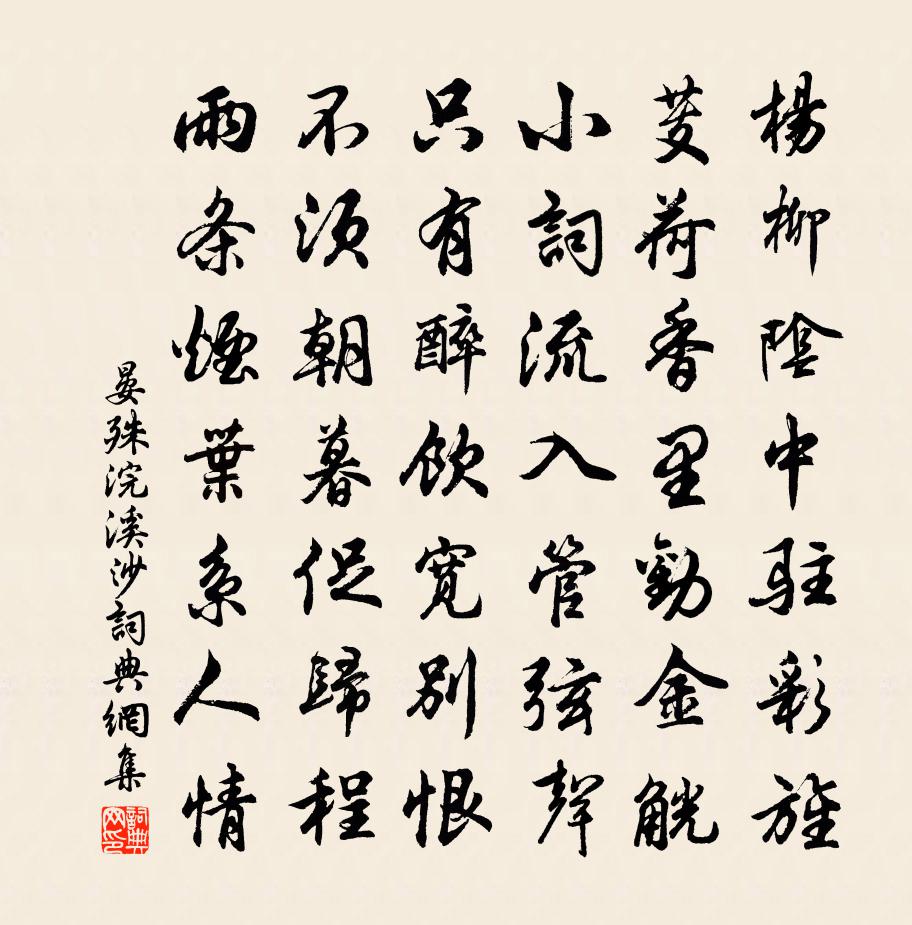 楊柳陰中駐彩旌
芰荷香里勸金觥
小詞流入管弦聲
只有醉飲寬別恨
不須朝暮促歸程
雨条煙葉系人情
晏殊浣溪沙詞典網集
詞典網印